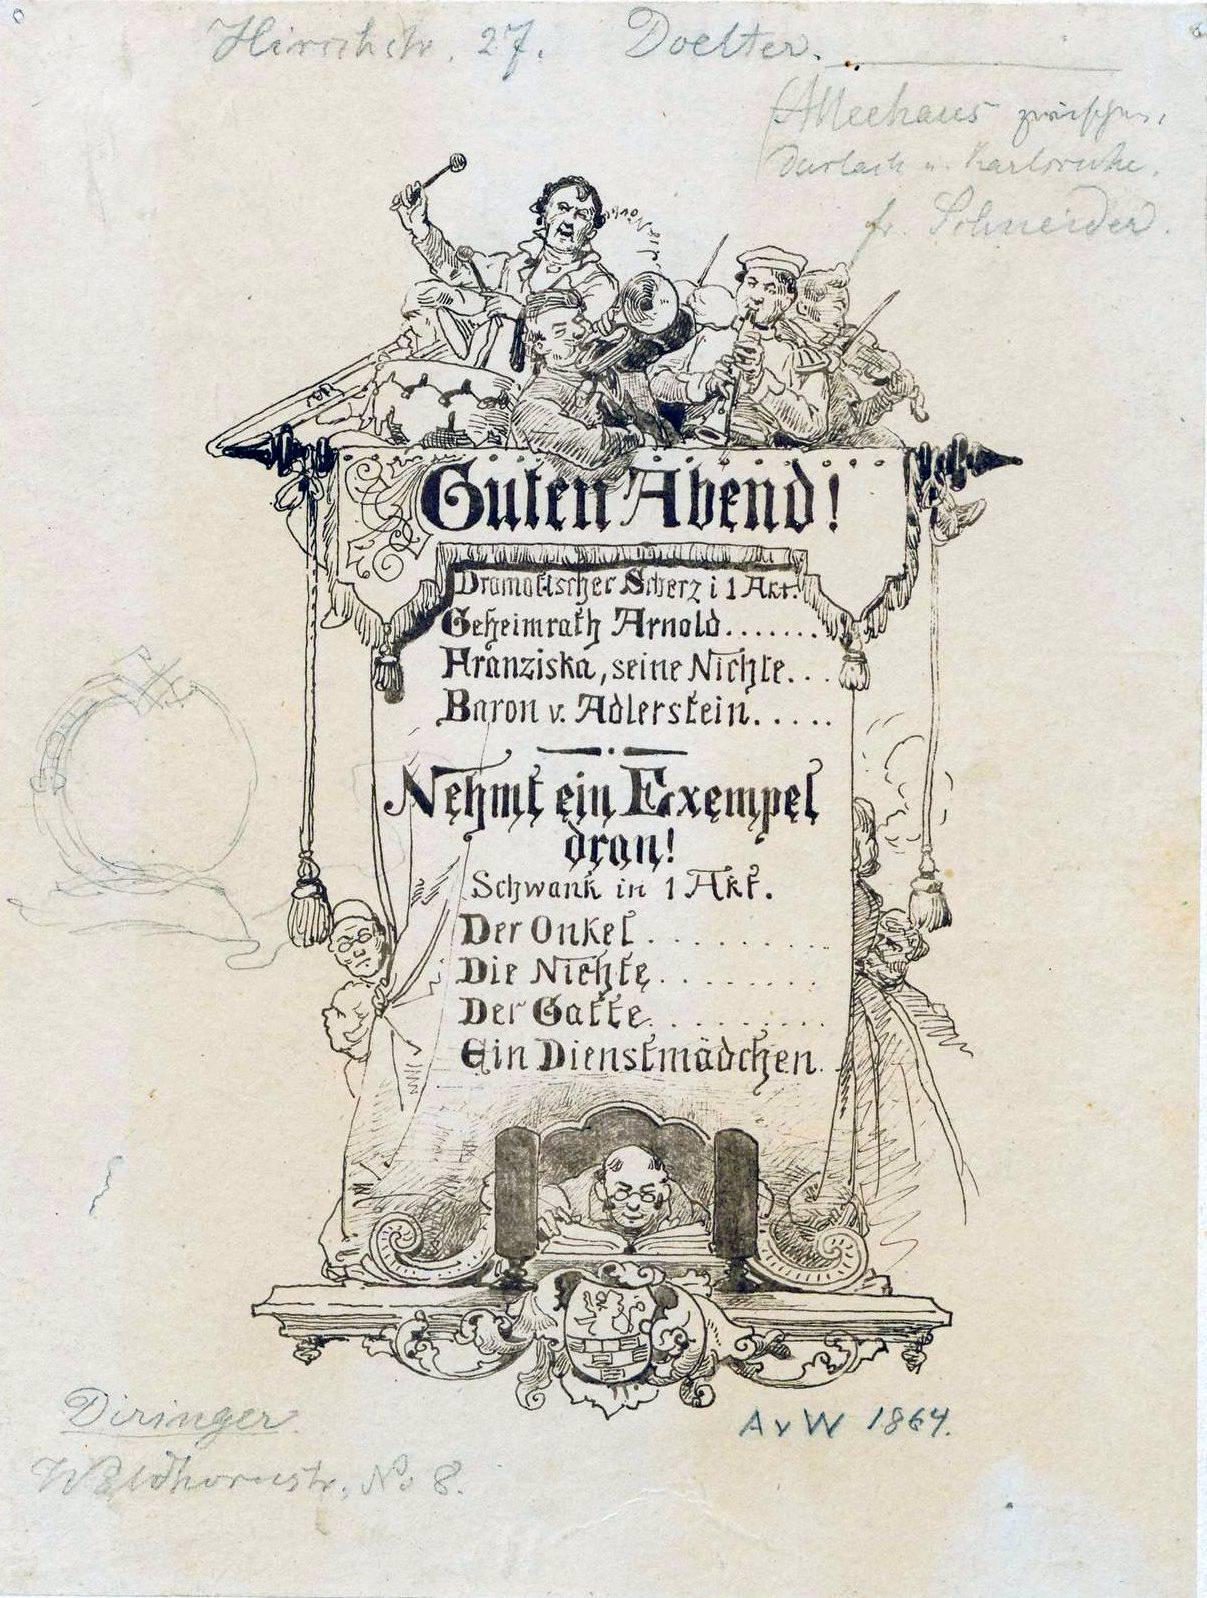 Hirschstr. 27. Doelter.
Alleehaus zwischen
Durlach u. Karlsruhe.
fr. Schneider.
Guten Abend!
Dramatischer Scherz i 1 Akt.
Geheimrath Arnold.......
Franziska, seine Nichte...
Baron v. Adlerstein.....
Nehmt ein Exempel
dran!
Schwank in 1 Akt.
Der Onkel..........
Die Nichte.........
Der Gatte..........
Ein Dienstmädchen..
AvW 1864.
Diringer
Waldhornstr. No 8.